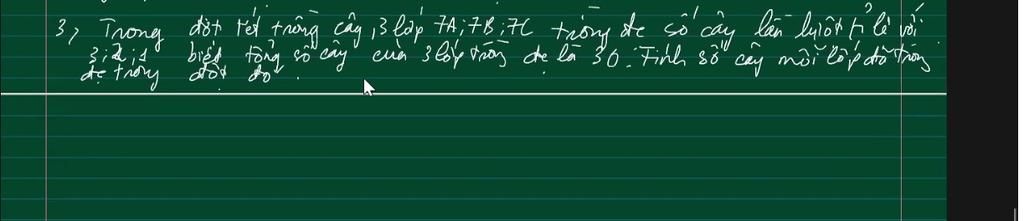 3, Trong đợt tết trồng cây, 3 lớp 7A; 7B; 7C trồng đc số cây lần lượt tỉ lệ với
biết tổng số cây của 3 lớp trồng đc là 30. Tính số cây mỗi lớp đã trồng
đc trong đợt đó.